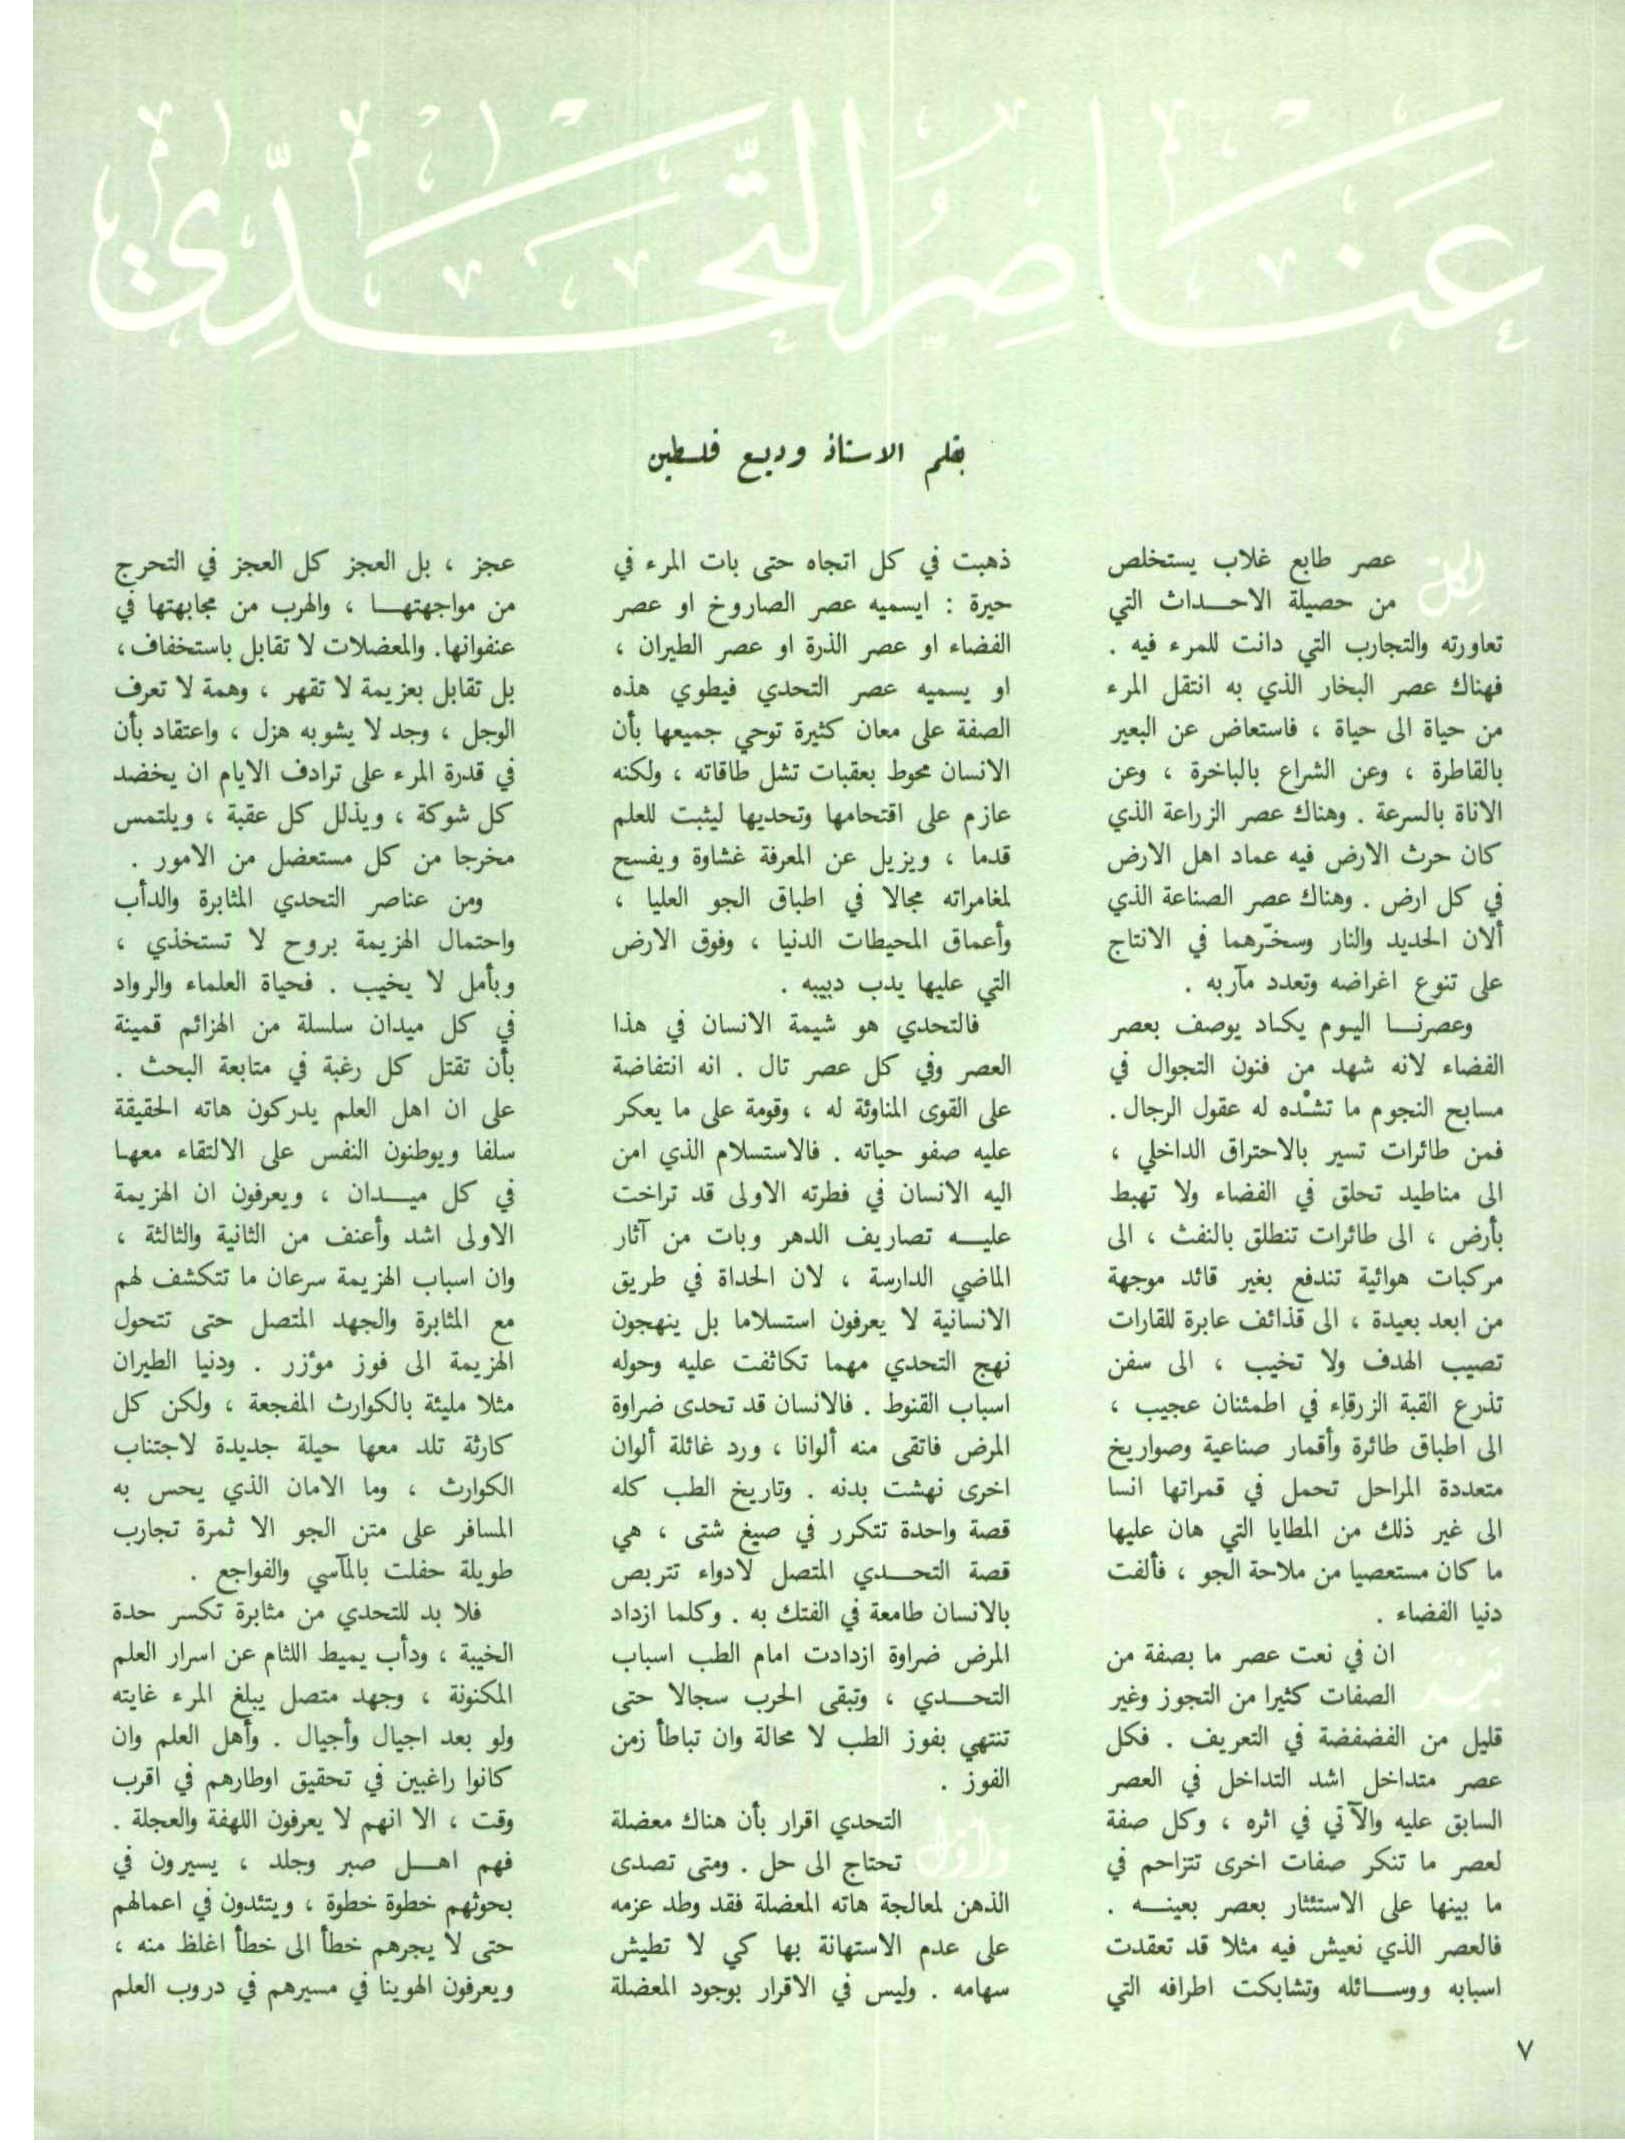 عناصر التحدي
بقلم الاستاذ وديع فلسطين
لكل عصر طابع غلاب يستخلص
من حصيلة الاحداث التي
تعاورته والتجارب التي دانت للمرء فيه .
فهناك عصر البخار الذي به انتقل المرء
من حياة الى حياة ، فاستعاض عن البعير
بالقاطرة ، وعن الشراع بالباخرة ، وعن
الاناة بالسرعة . وهناك عصر الزراعة الذي
كان حرث الارض فيه عماد اهل الارض
في كل ارض . وهناك عصر الصناعة الذي
ألان الحديد والنار وسخّرهما في الانتاج
على تنوع اغراضه وتعدد مآربه .
وعصرنا اليوم يكاد يوصف بعصر
الفضاء لانه شهد من فنون التجوال في
مسابح النجوم ما تشْده له عقول الرجال.
فمن طائرات تسير بالاحتراق الداخلي ،
الى مناطيد تحلق في الفضاء ولا تهبط
بأرض ، الى طائرات تنطلق بالنفث ، الى
مركبات هوائية تندفع بغير قائد موجهة
من ابعد بعيدة ، الى قذائف عابرة للقارات
تصيب الهدف ولا تخيب ، الى سفن
تذرع القبة الزرقاء في اطمئنان عجيب ،
الى اطباق طائرة وأقمار صناعية وصواريخ
متعددة المراحل تحمل في قمراتها انسا
الى غير ذلك من المطايا التي هان عليها
ما كان مستعصيا من ملاحة الجو ، فألفت
دنيا الفضاء .
ان في نعت عصر ما بصفة من
الصفات كثيرا من التجوز وغير
قليل من الفضفضة في التعريف . فكل
عصر متداخل اشد التداخل في العصر
السابق عليه والآتي في اثره ، وكل صفة
لعصر ما تنكر صفات اخرى تتزاحم في
ما بينها على الاستئثار بعصر بعينه .
فالعصر الذي نعيش فيه مثلا قد تعقدت
اسبابه ووسائله وتشابكت اطرافه التي
ذهبت في كل اتجاه حتى بات المرء في
حيرة : ايسميه عصر الصاروخ او عصر
الفضاء او عصر الذرة او عصر الطيران ،
او يسميه عصر التحدي فيطوي هذه
الصفة على معان كثيرة توحي جميعها بأن
الانسان محوط بعقبات تشل طاقاته ، ولكنه
عازم على اقتحامها وتحديها ليثبت للعلم
قدما ، ويزيل عن المعرفة غشاوة ويفسح
لمغامراته مجالا في اطباق الجو العليا ،
وأعماق المحيطات الدنيا ، وفوق الارض
التي عليها يدب دبيبه .
فالتحدي هو شيمة الانسان في هذا
العصر وفي كل عصر تال . انه انتفاضة
على القوى المناوئة له ، وقومة على ما يعكر
عليه صفو حياته . فالاستسلام الذي امن
اليه الانسان في فطرته الاولى قد تراخت
عليه تصاريف الدهر وبات من آثار
الماضي الدارسة ، لان الحداة في طريق
الانسانية لا يعرفون استسلاما بل ينهجون
نهج التحدي مهما تكاثفت عليه وحوله
اسباب القنوط . فالانسان قد تحدى ضراوة
المرض فاتقى منه ألوانا ، ورد غائلة ألوان
اخرى نهشت بدنه . وتاريخ الطب كله
قصة واحدة تتكرر في صيغ شتى ، هي
قصة التحدي المتصل لادواء تتربص
بالانسان طامعة في الفتك به . وكلما ازداد
المرض ضراوة ازدادت امام الطب اسباب
التحدي ، وتبقى الحرب سجالا حتى
تنتهي بفوز الطب لا محالة وان تباطأ زمن
الفوز .
وأول التحدي اقرار بأن هناك معضلة
تحتاج الى حل . ومتى تصدى
الذهن لمعالجة هاته المعضلة فقد وطد عزمه
على عدم الاستهانة بها كي لا تطيش
سهامه . وليس في الاقرار بوجود المعضلة
عجز ، بل العجز كل العجز في التحرج
من مواجهتها ، والهرب من مجابهتها في
عنفوانها. والمعضلات لا تقابل باستخفاف ،
بل تقابل بعزيمة لا تقهر ، وهمة لا تعرف
الوجل ، وجد لا يشوبه هزل ، واعتقاد بأن
في قدرة المرء على ترادف الايام ان يخضد
كل شوكة ، ويذلل كل عقبة ، ويلتمس
مخرجا من كل مستعضل من الامور .
ومن عناصر التحدي المثابرة والدأب
واحتمال الهزيمة بروح لا تستخذي ،
وبأمل لا يخيب . فحياة العلماء والرواد
في كل ميدان سلسلة من الهزائم قمينة
بأن تقتل كل رغبة في متابعة البحث .
على ان اهل العلم يدركون هاته الحقيقة
سلفا ويوطنون النفس على الالتقاء معها
في كل ميدان ، ويعرفون ان الهزيمة
الاولى اشد وأعنف من الثانية والثالثة ،
وان اسباب الهزيمة سرعان ما تتكشف لهم
مع المثابرة والجهد المتصل حتى تتحول
الهزيمة الى فوز مؤزر . ودنيا الطيران
مثلا مليئة بالكوارث المفجعة ، ولكن كل
كارثة تلد معها حيلة جديدة لاجتناب
الكوارث ، وما الامان الذي يحس به
المسافر على متن الجو الا ثمرة تجارب
طويلة حفلت بالمآسي والفواجع .
فلا بد للتحدي من مثابرة تكسر حدة
الخيبة ، ودأب يميط اللثام عن اسرار العلم
المكنونة ، وجهد متصل يبلغ المرء غايته
ولو بعد اجيال وأجيال . وأهل العلم وان
كانوا راغبين في تحقيق اوطارهم في اقرب
وقت ، الا انهم لا يعرفون اللهفة والعجلة .
فهم اهل صبر وجلد ، يسيرون في
بحوثهم خطوة خطوة ، ويتئدون في اعمالهم
حتى لا يجرهم خطأ الى خطأ اغلظ منه ،
ويعرفون الهوينا في مسيرهم في دروب العلم
٧